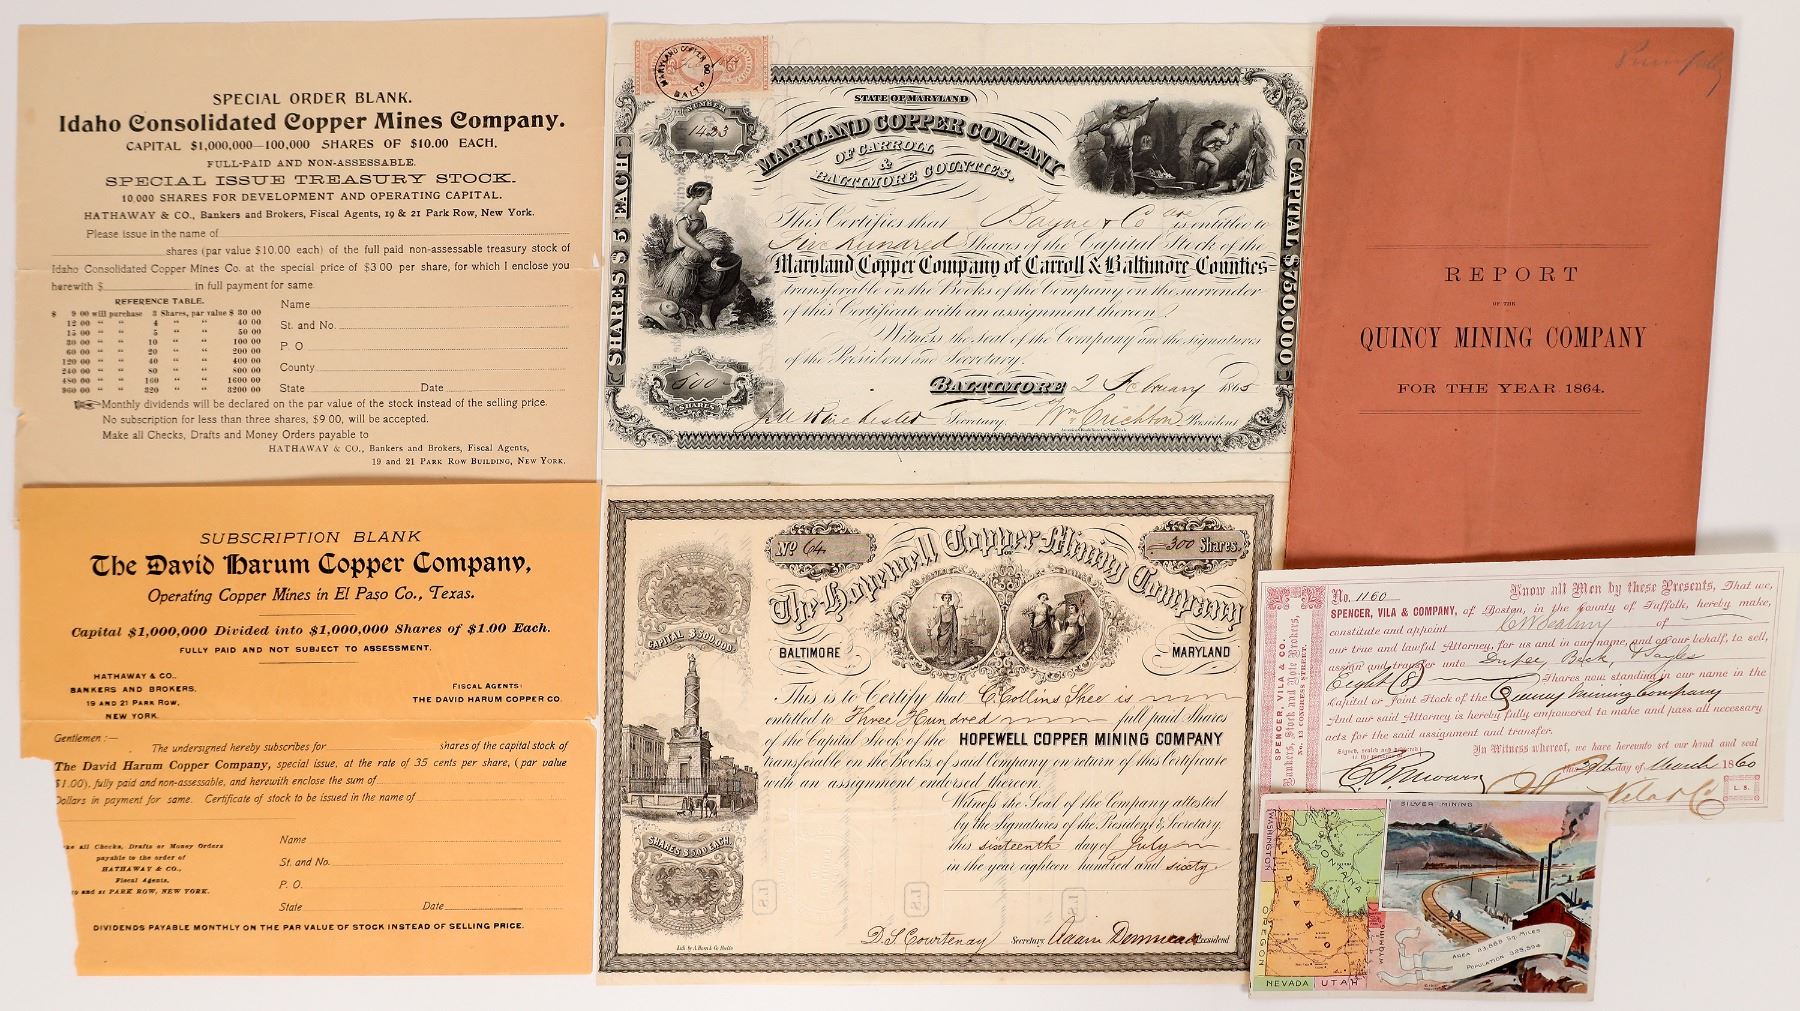 SPECIAL ORDER BLANK.
Idaho Consolidated Copper Mines Company.
CAPITAL $1,000,000—100,000 SHARES OF $10.00 EACH.
FULL-PAID AND NON-ASSESSABLE.
SPECIAL ISSUE TREASURY STOCK.
10,000 SHARES FOR DEVELOPMENT AND OPERATING CAPITAL.
HATHAWAY & CO., Bankers and Brokers, Fiscal Agents, 19 & 21 Park Row, New York.
Please issue in the name of
shares (par value $10.00 each) of the full paid non-assessable treasury stock of
Idaho Consolidated Copper Mines Co. at the special price of $3.00 per share, for which I enclose you
herewith $ in full payment for same.
REFERENCE TABLE.
$ 9 00 will purchase 3 Shares, par value $ 30 00
12 00 " " 4 " " 40 00
15 00 " " 5 " " 50 00
30 00 " " 10 " " 100 00
60 00 " " 20 " " 200 00
120 00 " " 40 " " 400 00
240 00 " " 80 " " 800 00
480 00 " " 160 " " 1600 00
960 00 " " 320 " " 3200 00
Name
St. and No.
P O
County
State Date
Monthly dividends will be declared on the par value of the stock instead of the selling price.
No subscription for less than three shares, $9 00, will be accepted.
Make all Checks, Drafts and Money Orders payable to
HATHAWAY & CO., Bankers and Brokers, Fiscal Agents,
19 and 21 PARK ROW BUILDING, NEW YORK.
SUBSCRIPTION BLANK
The David Harum Copper Company,
Operating Copper Mines in El Paso Co., Texas.
Capital $1,000,000 Divided into $1,000,000 Shares of $1.00 Each.
FULLY PAID AND NOT SUBJECT TO ASSESSMENT.
HATHAWAY & CO.,
BANKERS AND BROKERS,
19 AND 21 PARK ROW,
NEW YORK.
FISCAL AGENTS:
THE DAVID HARUM COPPER CO.
Gentlemen:—
The undersigned hereby subscribes for shares of the capital stock of
The David Harum Copper Company, special issue, at the rate of 35 cents per share, (par value
$1.00), fully paid and non-assessable, and herewith enclose the sum of
Dollars in payment for same. Certificate of stock to be issued in the name of
all Checks, Drafts or Money Orders
payable to the order of
HATHAWAY & CO.,
Fiscal Agents,
and 21 PARK ROW, NEW YORK.
Name
St. and No.
P. O.
State Date
DIVIDENDS PAYABLE MONTHLY ON THE PAR VALUE OF STOCK INSTEAD OF SELLING PRICE.
MARYLAND COPPER CO
BALTO
NUMBER
1433
STATE OF MARYLAND
MARYLAND COPPER COMPANY
OF CARROLL
&
BALTIMORE COUNTIES.
SHARES $5 EACH
CAPITAL $750,000
This Certifies that Bayne & Co are entitled to
Five Hundred Shares of the Capital Stock of the
Maryland Copper Company of Carroll & Baltimore Counties
transferable on the Books of the Company on the surrender
of this Certificate with an assignment thereon.
Witness the Seal of the Company and the signatures
of the President and Secretary.
500
SHARES
BALTIMORE 2 February 1865
Winchester Secretary. Wm Crichton President
REPORT
OF THE
QUINCY MINING COMPANY
FOR THE YEAR 1864.
No 64
300 Shares.
The Hopewell Copper Mining Company
CAPITAL $500,000
BALTIMORE MARYLAND
This is to Certify that C Collins Shee is
entitled to Three Hundred full paid Shares
of the Capital Stock of the HOPEWELL COPPER MINING COMPANY
transferable on the Books of said Company on return of this Certificate
with an assignment endorsed thereon.
Witness the Seal of the Company attested
by the Signatures of the President & Secretary.
this sixteenth day of July
in the year eighteen hundred and sixty
SHARES $5.00 EACH.
L.S. L.S. L.S.
Lith by A. Hoen & Co. Balto
D. S. Courtenay Secretary. Adam President
SPENCER, VILA & CO.
Bankers, Stock and Note Brokers,
No. 13 CONGRESS STREET.
No. 1160 Know all Men by these Presents, That we,
SPENCER, VILA & COMPANY, of Boston, in the County of Suffolk, hereby make,
constitute and appoint of
our true and lawful Attorney, for us and in our name, and on our behalf, to sell,
assign and transfer unto Dupee, Beck, & Sayles
Eight (8) Shares now standing in our name in the
Capital or Joint Stock of the Quincy Mining Company
And our said Attorney is hereby fully empowered to make and pass all necessary
acts for the said assignment and transfer.
Signed, sealed and delivered
in the presence of
In Witness whereof, we have hereunto set our hand and seal
this 29th day of March 1860
Vila & Co
L. S.
SILVER MINING
WASHINGTON
MONTANA
IDAHO
OREGON
WYOMING
NEVADA UTAH
AREA 83,888 SQ. MILES
POPULATION 325,594